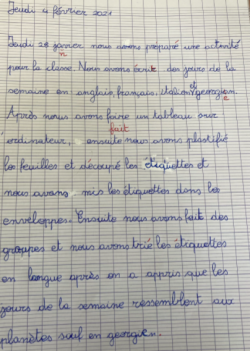 Jeudi 4 février 2021
Jeudi 28 janvier nous avons préparé une activité
n
pour la classe. Nous avons écrit des jours de la
semaine en anglais, français, italien et georgien.
Après nous avons faire un tableau sur
fait
ordinateur, ensuite nous avons plastifié
les feuilles et découpé les étiquettes et
nous avons mis les étiquettes dans les
enveloppes. Ensuite nous avons fait des
groupes et nous avons trié les étiquettes
en langue après on a appris que les
jours de la semaine ressemblent aux
planètes sauf en georgien.